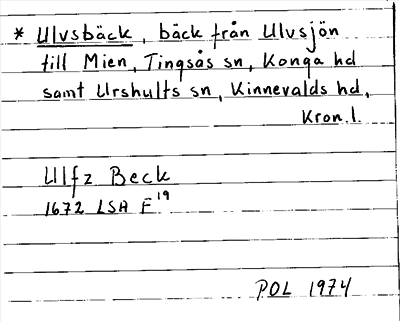 * Ulvsbäck, bäck från Ulvsjön
till Mien, Tingsås sn, Konga hd
samt Urshults sn, Kinnevalds hd,
Kron. l.
Ulfz Beck
1672 LSA F 19
POL 1974